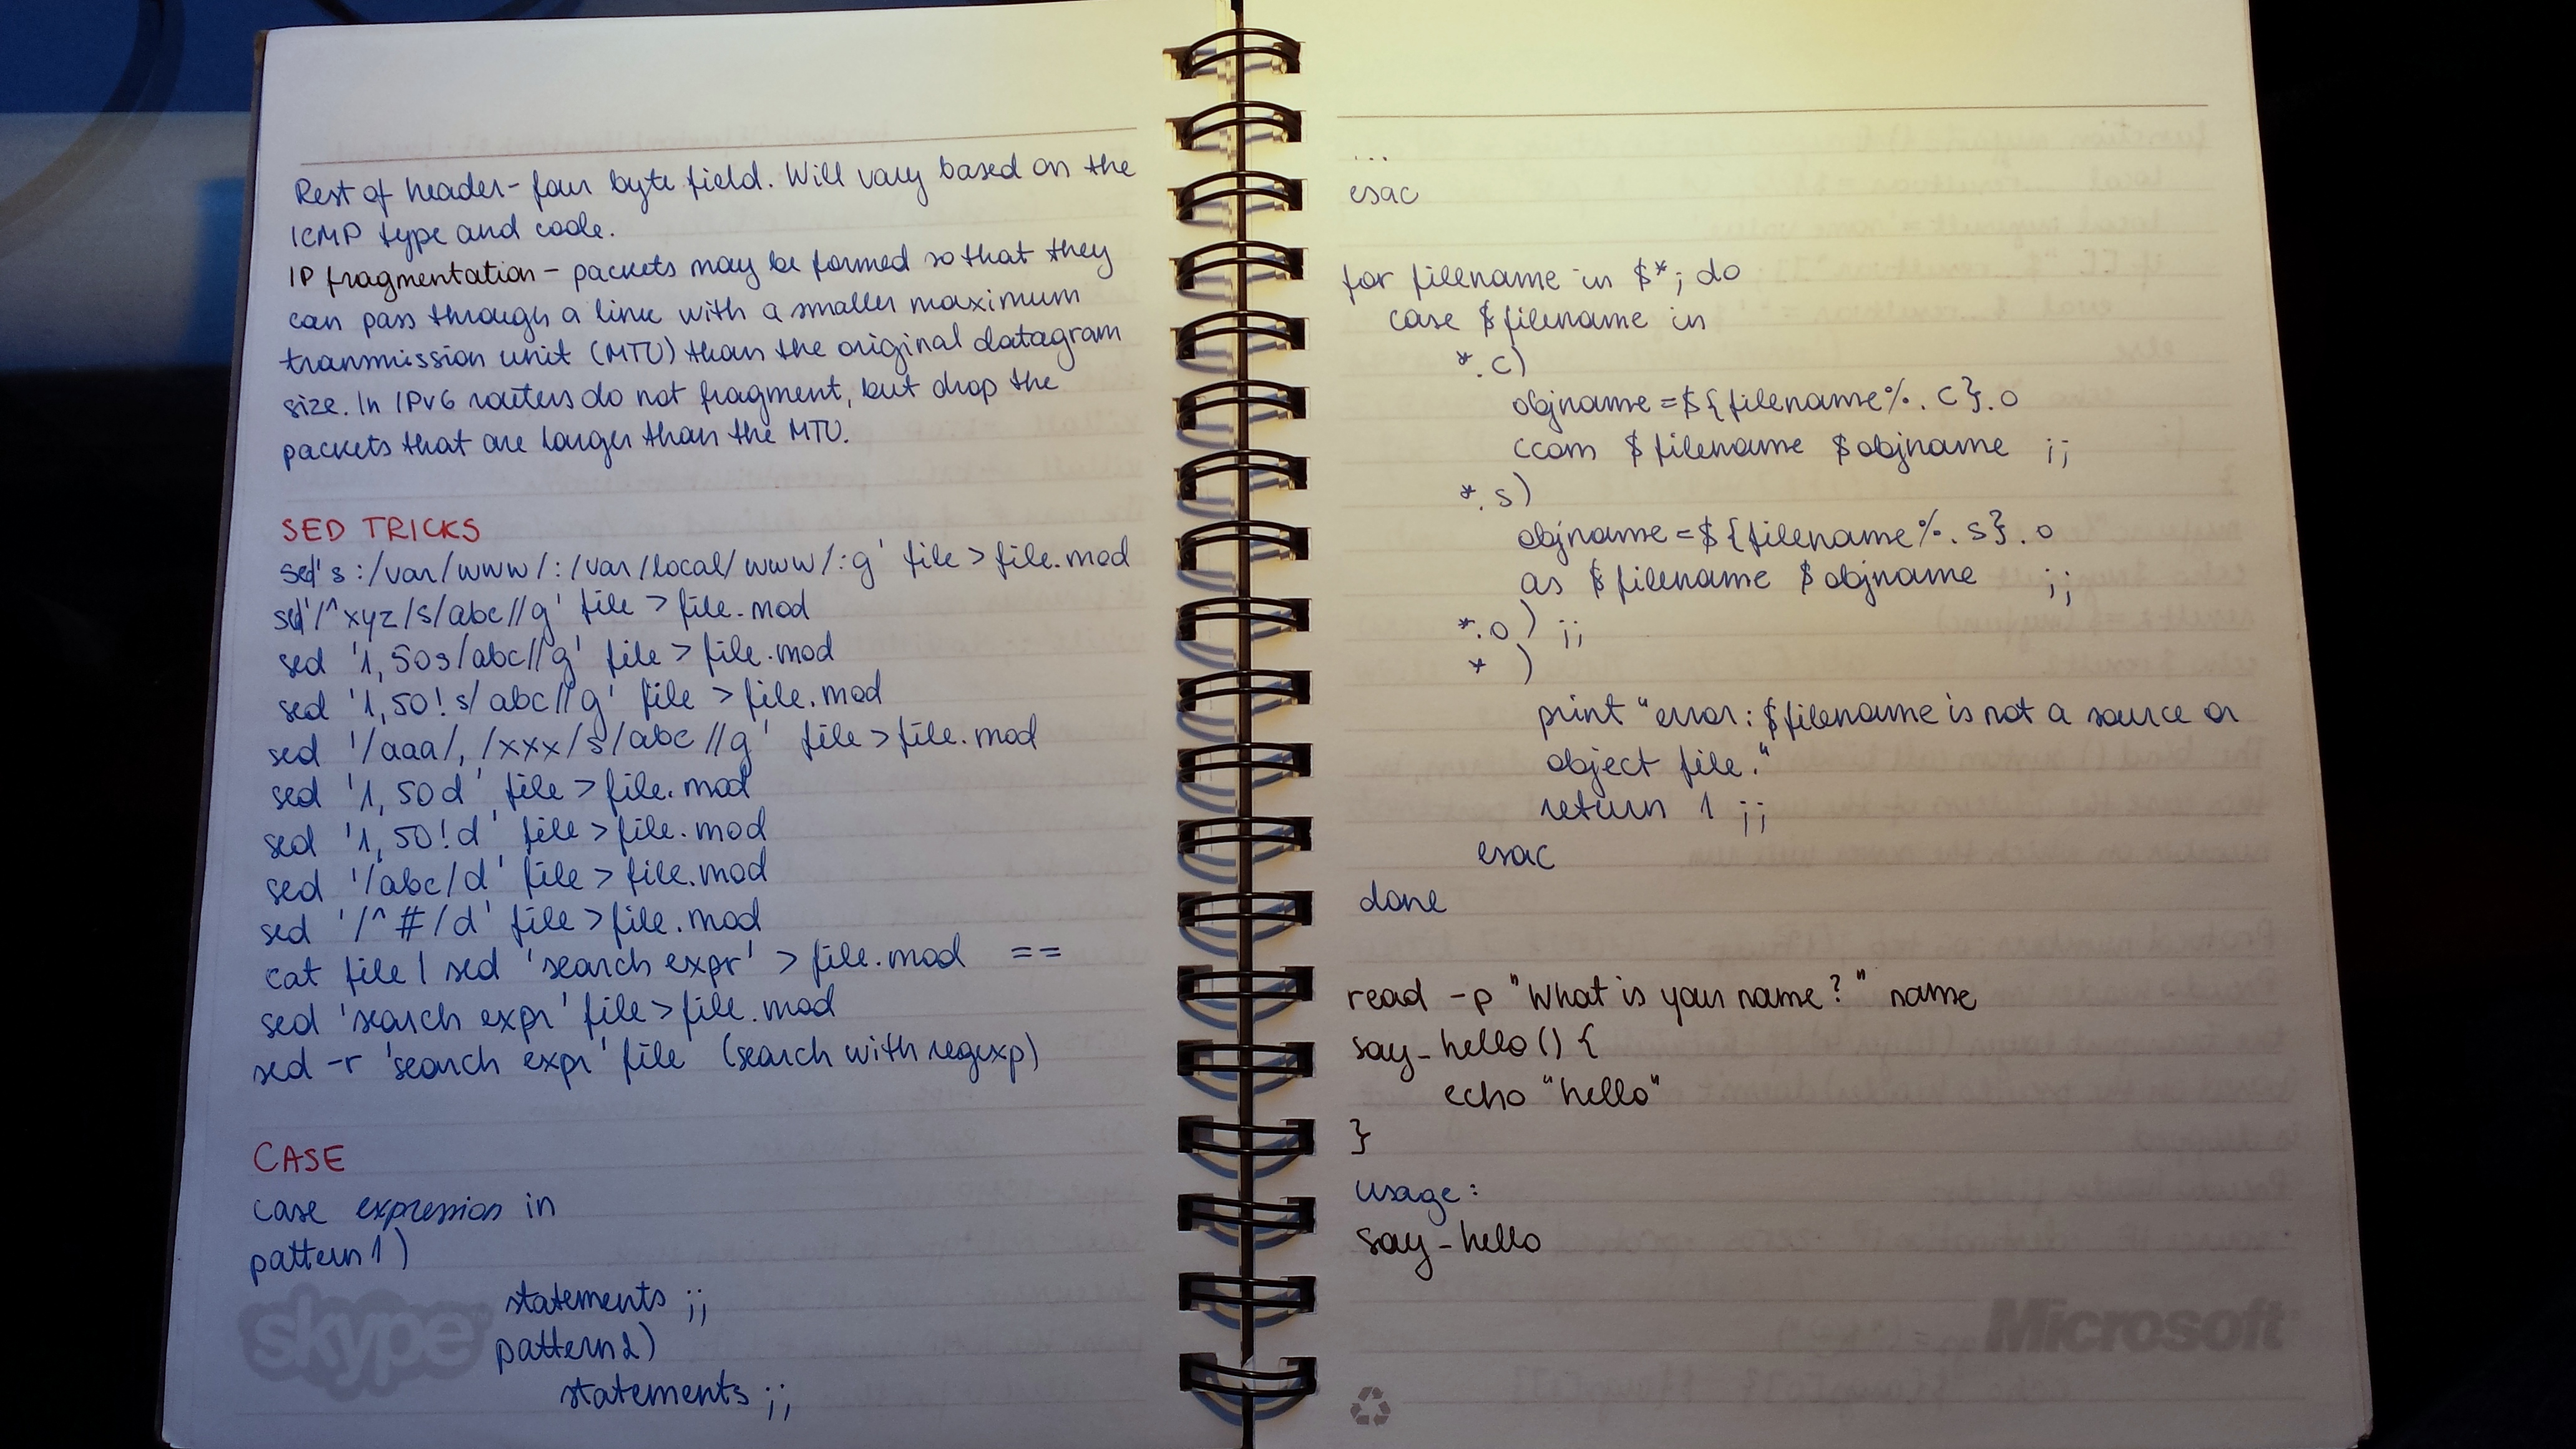 Rest of header - four byte field. Will vary based on the
ICMP type and code.
IP fragmentation - packets may be formed so that they
can pass through a link with a smaller maximum
transmission unit (MTU) than the original datagram
size. In IPv6 routers do not fragment, but drop the
packets that are larger than the MTU.
SED TRICKS
sed 's:/var/www/:/var/local/www/:g' file > file.mod
sed '/^xyz/s/abc//g' file > file.mod
sed '1,50s/abc//g' file > file.mod
sed '1,50!s/abc//g' file > file.mod
sed '/aaa/,/xxx/s/abc//g' file > file.mod
sed '1,50d' file > file.mod
sed '1,50!d' file > file.mod
sed '/abc/d' file > file.mod
sed '/^#/d' file > file.mod
cat file | sed 'search expr' > file.mod ==
sed 'search expr' file > file.mod
sed -r 'search expr' file (search with regexp)
CASE
case expression in
pattern1)
statements ;;
pattern2)
statements ;;
skype
...
esac
for filename in $*; do
case $filename in
*.c)
objname=${filename%.c}.o
ccom $filename $objname ;;
*.s)
objname=${filename%.s}.o
as $filename $objname ;;
*.o) ;;
* )
print "error: $filename is not a source or
object file."
return 1 ;;
esac
done
read -p "What is your name?" name
say_hello() {
echo "hello"
}
usage:
say_hello
Microsoft